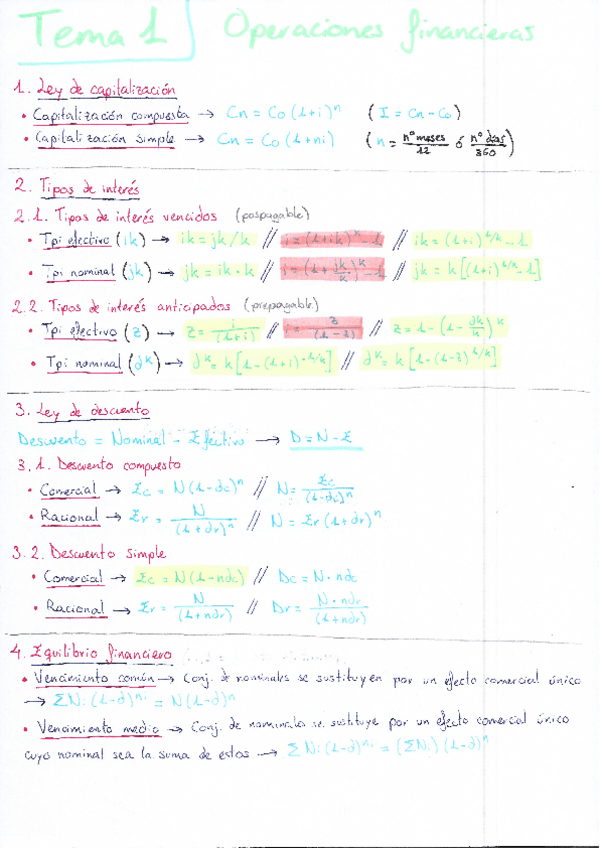 Tema 1 Operaciones financieras
1. Ley de capitalización
• Capitalización compuesta → Cn = Co (1+i)^n (I = Cn - Co)
• Capitalización simple → Cn = Co (1+ni) (n = nº meses/12 ó nº días/360)
2. Tipos de interés
2.1. Tipos de interés vencidos (pospagable)
• Tpi efectivo (ik) → ik = jk/k // i = (1+ik)^k - 1 // ik = (1+i)^1/k - 1
• Tpi nominal (jk) → jk = ik · k // i = (1 + jk/k)^k - 1 // jk = k[(1+i)^1/k - 1]
2.2. Tipos de interés anticipados (prepagable)
• Tpi efectivo (z) → z = i/(1+i) // i = z/(1-z) // z = 1 - (1 - ∂k/k)^k
• Tpi nominal (∂k) → ∂k = k[1 - (1+i)^-1/k] // ∂k = k[1 - (1-z)^1/k]
3. Ley de descuento
Descuento = Nominal - Efectivo → D = N - E
3.1. Descuento compuesto
• Comercial → Ec = N(1-dc)^n // N = Ec/(1-dc)^n
• Racional → Er = N/(1+dr)^n // N = Er(1+dr)^n
3.2. Descuento simple
• Comercial → Ec = N(1-ndc) // Dc = N · ndc
• Racional → Er = N/(1+ndr) // Dr = N · ndr/(1+ndr)
4. Equilibrio financiero
• Vencimiento común → Conj. de nominales se sustituyen por un efecto comercial único
→ ΣNi(1-d)^ni = N(1-d)^n
• Vencimiento medio → Conj. de nominales se sustituye por un efecto comercial único
cuyo nominal sea la suma de estos → ΣNi(1-d)^ni = (ΣNi)(1-d)^n